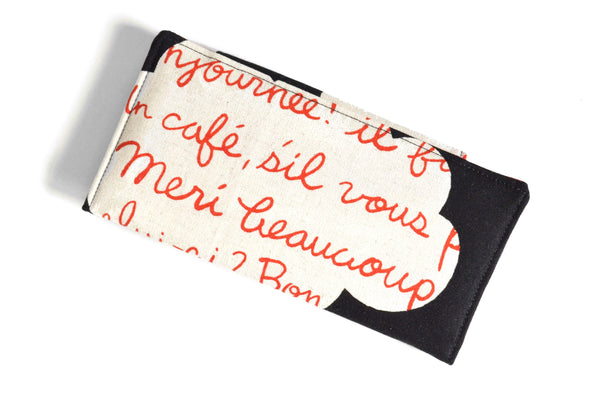 njournée! il fu
un café, s'il vous p
Meri beaucoup
? Bon